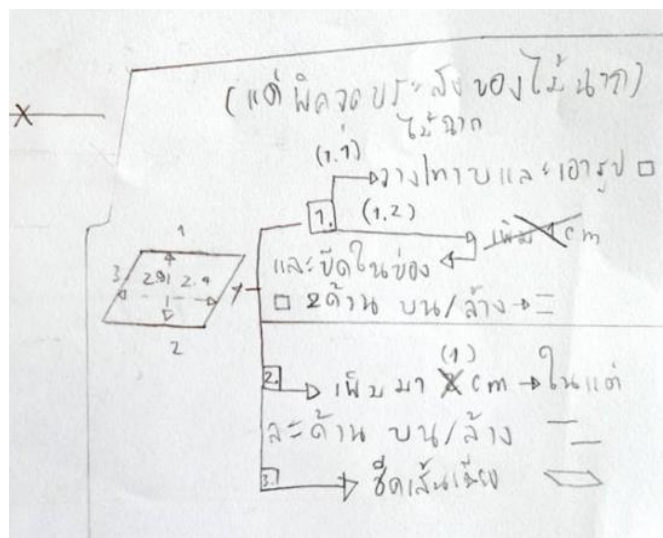 (แต่ผิดจุดประสงของไม้ฉาก)
ไม้ฉาก
(1.1)
วางทาบและเอารูป □
1. (1.2)
เพิ่ม cm
และขีดในช่อง
□ 2ด้าน บน/ล้าง → =
X
1
3 2.9 2.9 4
2
2. เพิ่มมา (1) cm → ในแต่
ละด้าน บน/ล้าง
3. ขีดเส้นเฉียง